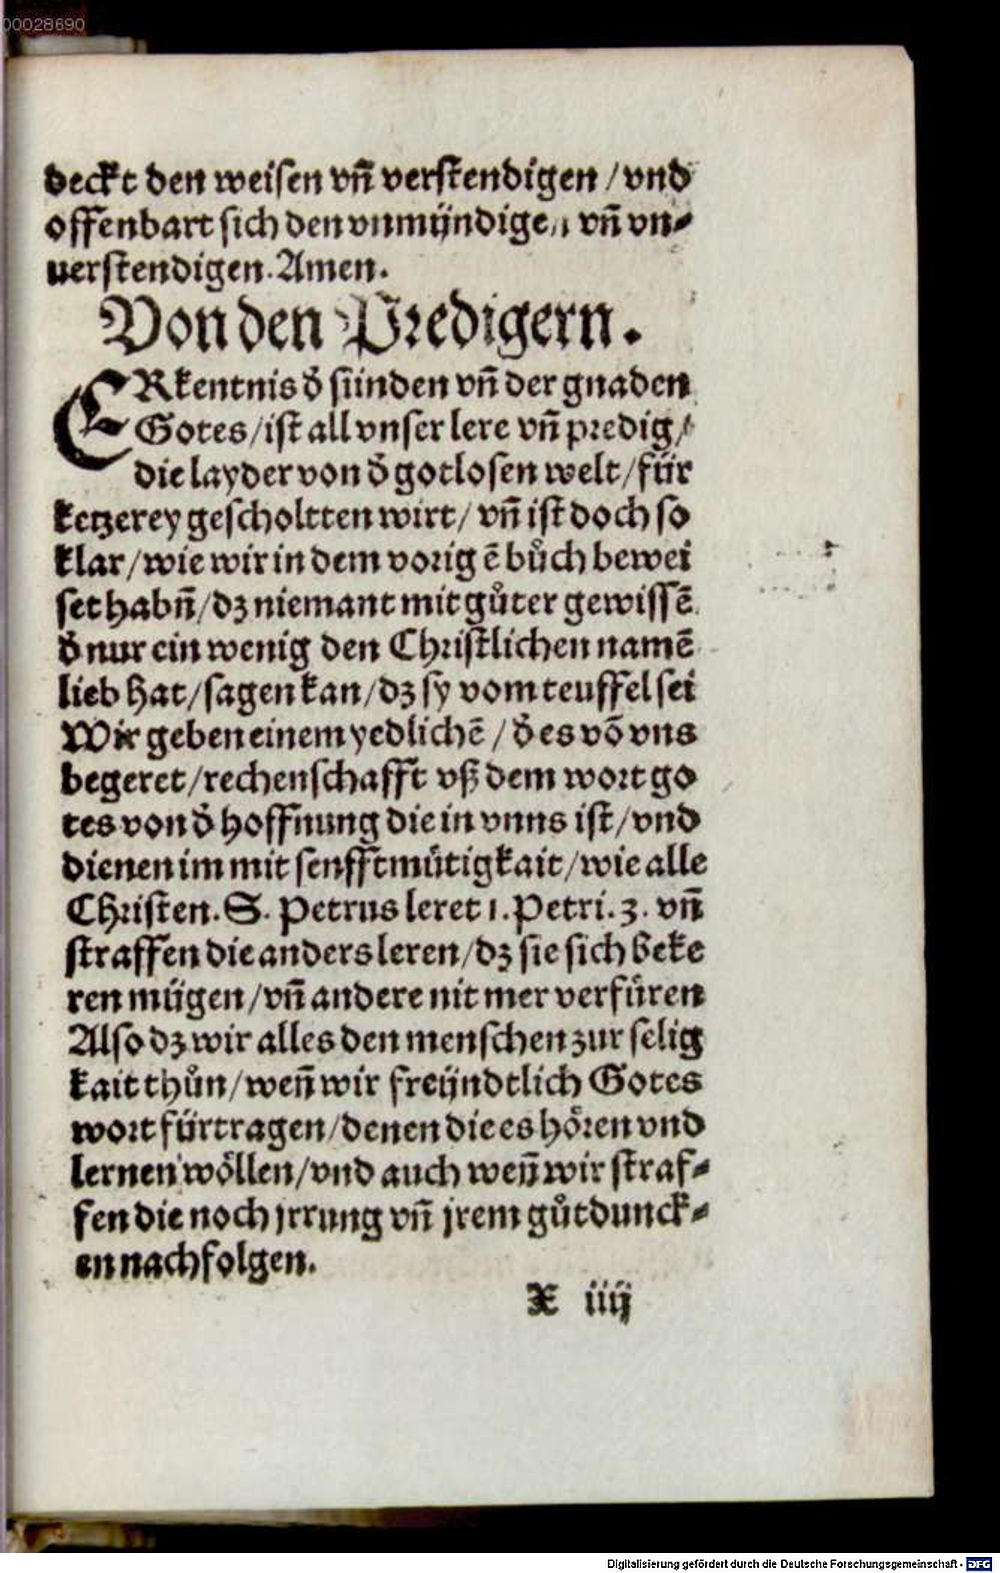 00028690
deckt den weisen vn̄ verstendigen / vnd
offenbart sich den vnmündigen vn̄ vn⸗
uerstendigen. Amen.
Von den Predigern.
ERkentnis d̕ sünden vn̄ der gnaden
Gotes / ist all vnser lere vn̄ predig /
die layder von d̕ gotlosen welt / für
ketzerey gescholtten wirt / vn̄ ist doch so
klar / wie wir in dem vorigē bůch bewei
set habn̄ / dz niemant mit gůter gewissē
d̕ nur ein wenig den Christlichen namē
lieb hat / sagen kan / dz sy vom teuffel sei
Wir geben einem yedlichē / d̕ es võ vns
begeret / rechenschafft vß dem wort go
tes von d̕ hoffnung die in vnns ist / vnd
dienen im mit senfftmütigkait / wie alle
Christen. S. Petrus leret 1. Petri. 3. vn̄
straffen die anders leren / dz sie sich beke
ren mügen / vn̄ andere nit mer verfüren
Also dz wir alles den menschen zur selig
kait thůn / wen̄ wir freündtlich Gotes
wort fürtragen / denen die es hören vnd
lernen wöllen / vnd auch wen̄ wir straf⸗
fen die noch jrrung vn̄ jrem gůtdunck⸗
en nachfolgen.
X iiij
Digitalisierung gefördert durch die Deutsche Forschungsgemeinschaft - DFG